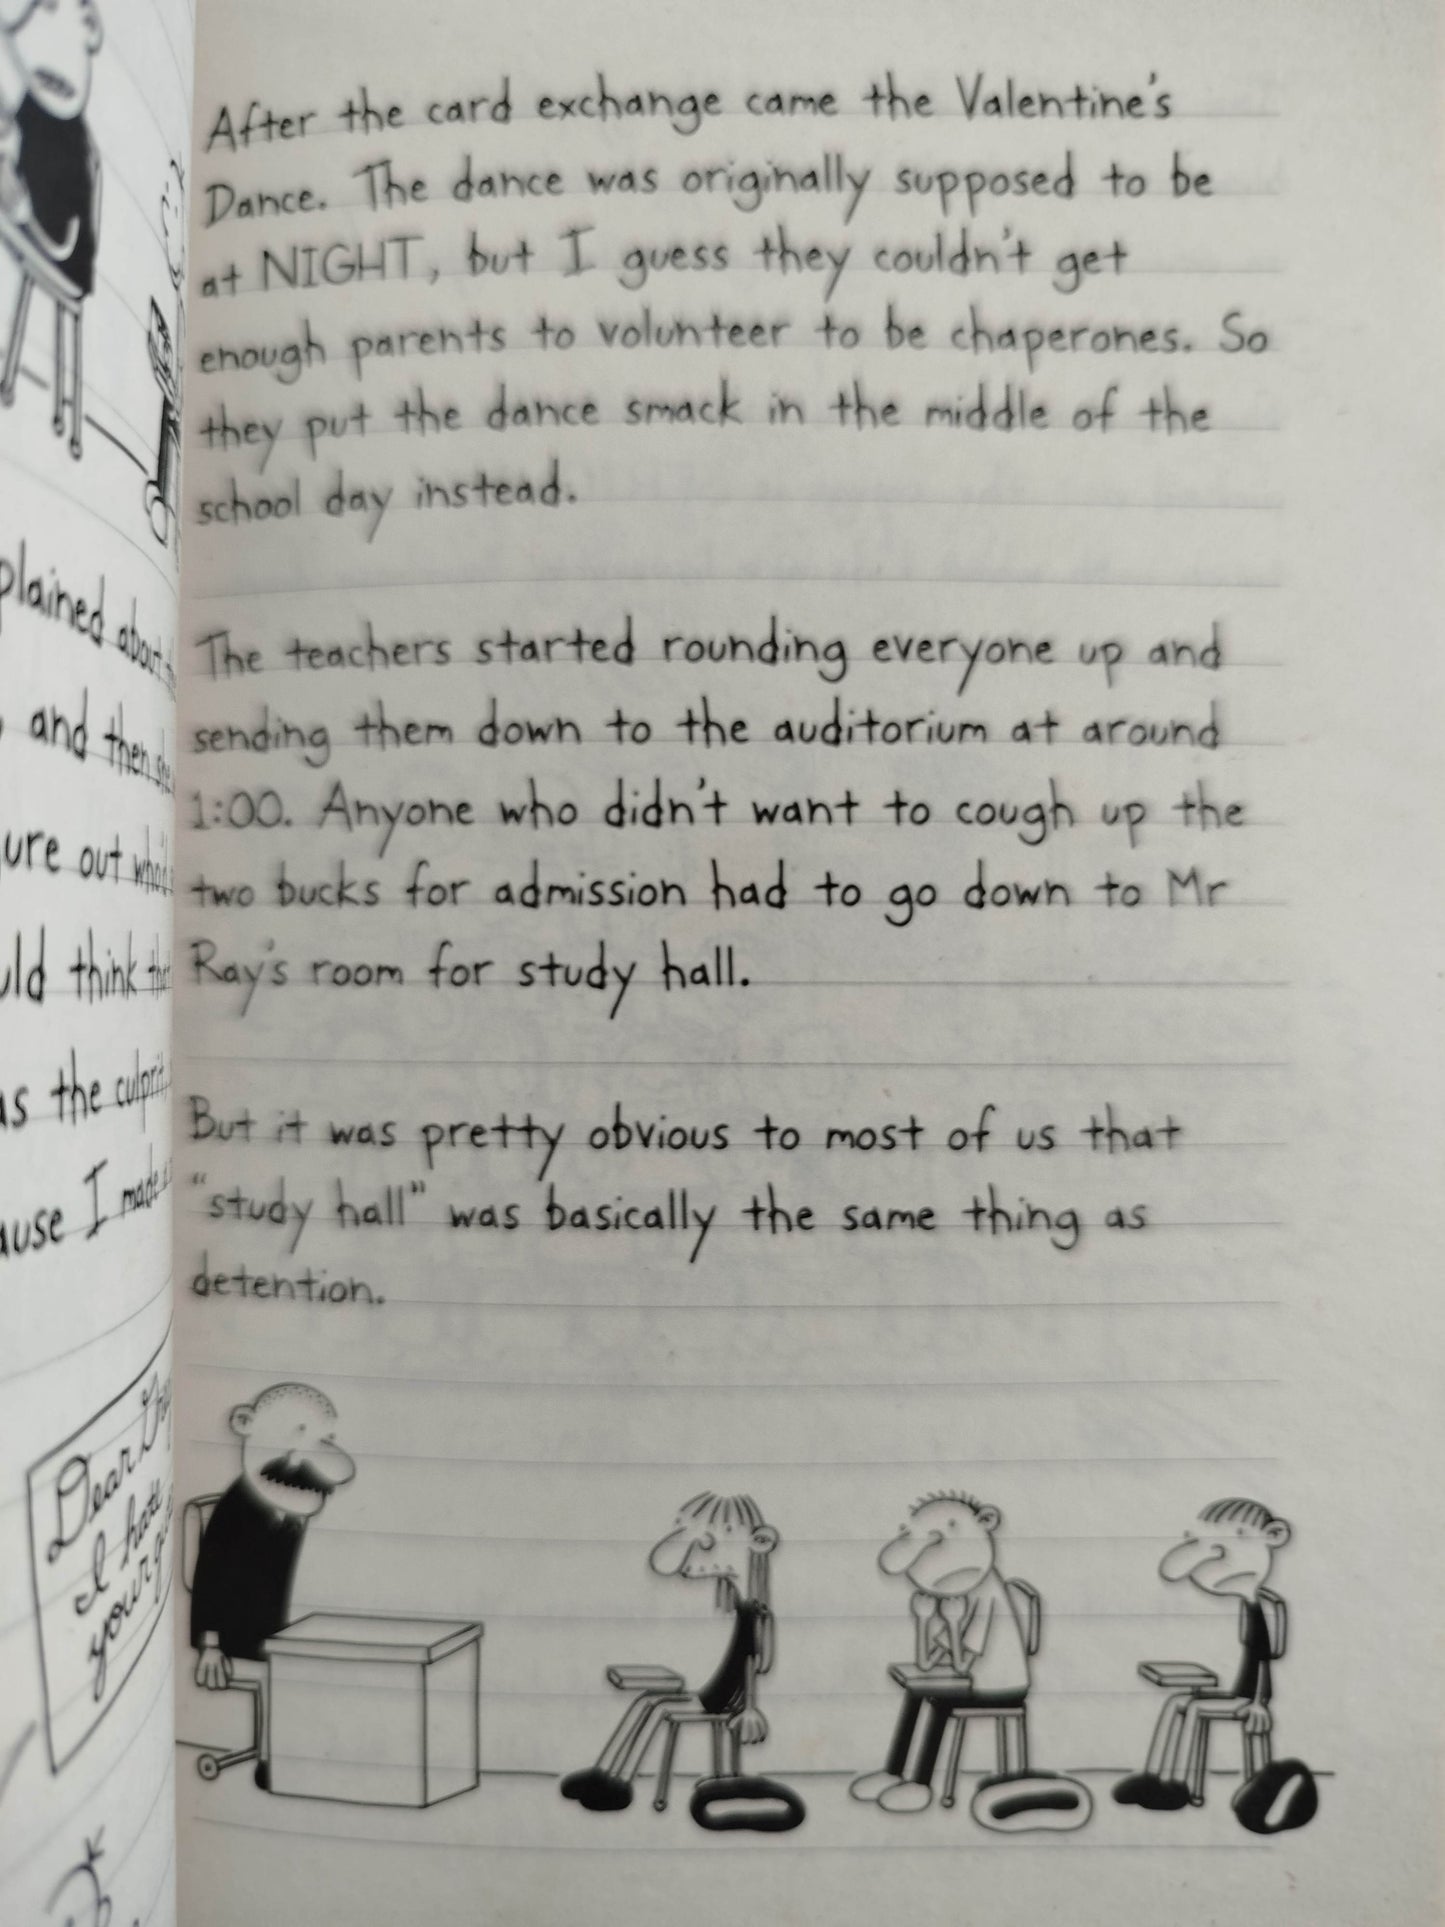 After the card exchange came the Valentine's
Dance. The dance was originally supposed to be
at NIGHT, but I guess they couldn't get
enough parents to volunteer to be chaperones. So
they put the dance smack in the middle of the
school day instead.
The teachers started rounding everyone up and
sending them down to the auditorium at around
1:00. Anyone who didn't want to cough up the
two bucks for admission had to go down to Mr
Ray's room for study hall.
But it was pretty obvious to most of us that
"study hall" was basically the same thing as
detention.
plained about
and then
ure out
uld think
as the culprit
ause I made
Dear
I hate
your